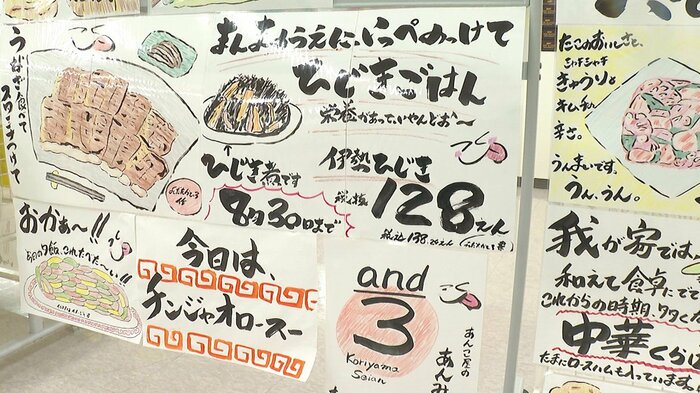 うなぎ食べて
スタミナつけて
まんまのうえに、いっぺのっけて
ひじきごはん
栄養があって、いいやんどぉ〜
ひじき煮です
8月30日まで
伊勢ひじき
税抜
128えん
おかぁ〜!!
今日は、
チンジャオロースー
and
3
Koriyama
Seian
あんこ屋の
あんみ
たこのおいしさと、
シャキシャキ
きゅうりと
キムチの
辛さ。
うんまいです。
うん、うん。
我が家では、
和えて食卓にで
これからの時期、
中華くらげ
たまにロースハムも入っています。